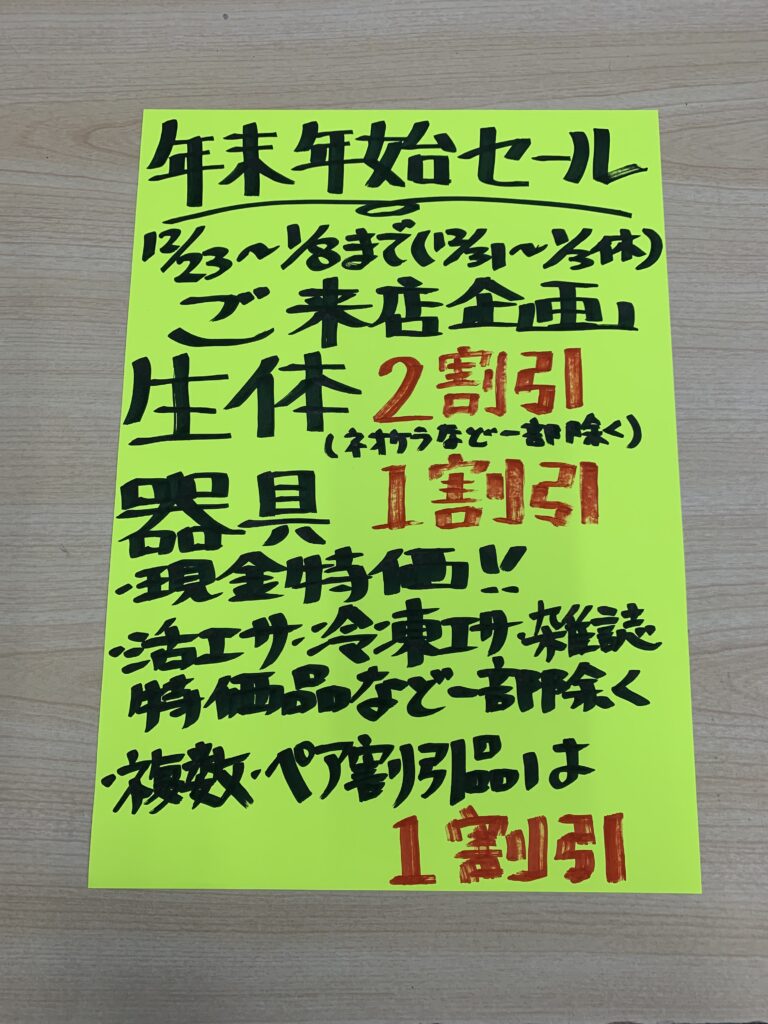 年末年始セール
12/23〜1/8まで(12/31〜1/3休)
ご来店企画
生体 2割引
(ネオケラなど一部除く)
器具 1割引
・現金特価!!
・活エサ・冷凍エサ・雑誌
特価品など一部除く
・複数・ペア割引品は
1割引